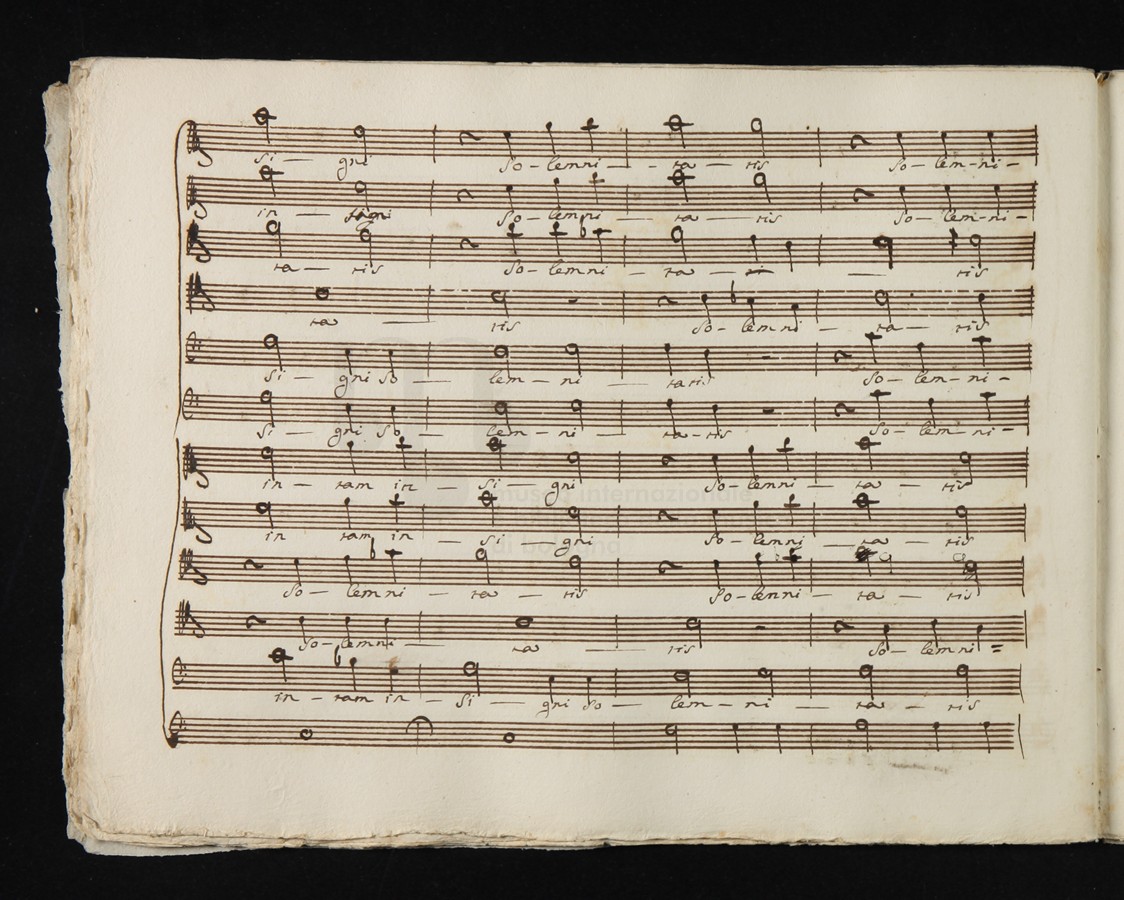 si — gni so – lemni — ta — tis so – lem – ni –
in — signi so – lemni — ta — tis so – lem – ni –
ta — tis so – lemni — ta — — tis
ta — tis so – lemni — ta — tis
si — gni so — lem – ni — tatis so – lem – ni –
si — gni so — lem – ni — ta – tis so – lem – ni –
in – tam in — si — gni so – lemni — ta — tis
in tam in — si — gni so – lemni — ta — tis
so – lemni — ta — tis so – lenni — ta — tis
so – lemni — ta — tis so – lemni =
in – tam in — si — gni so — lem – ni — ta — tis
museo internazionale
di bologna